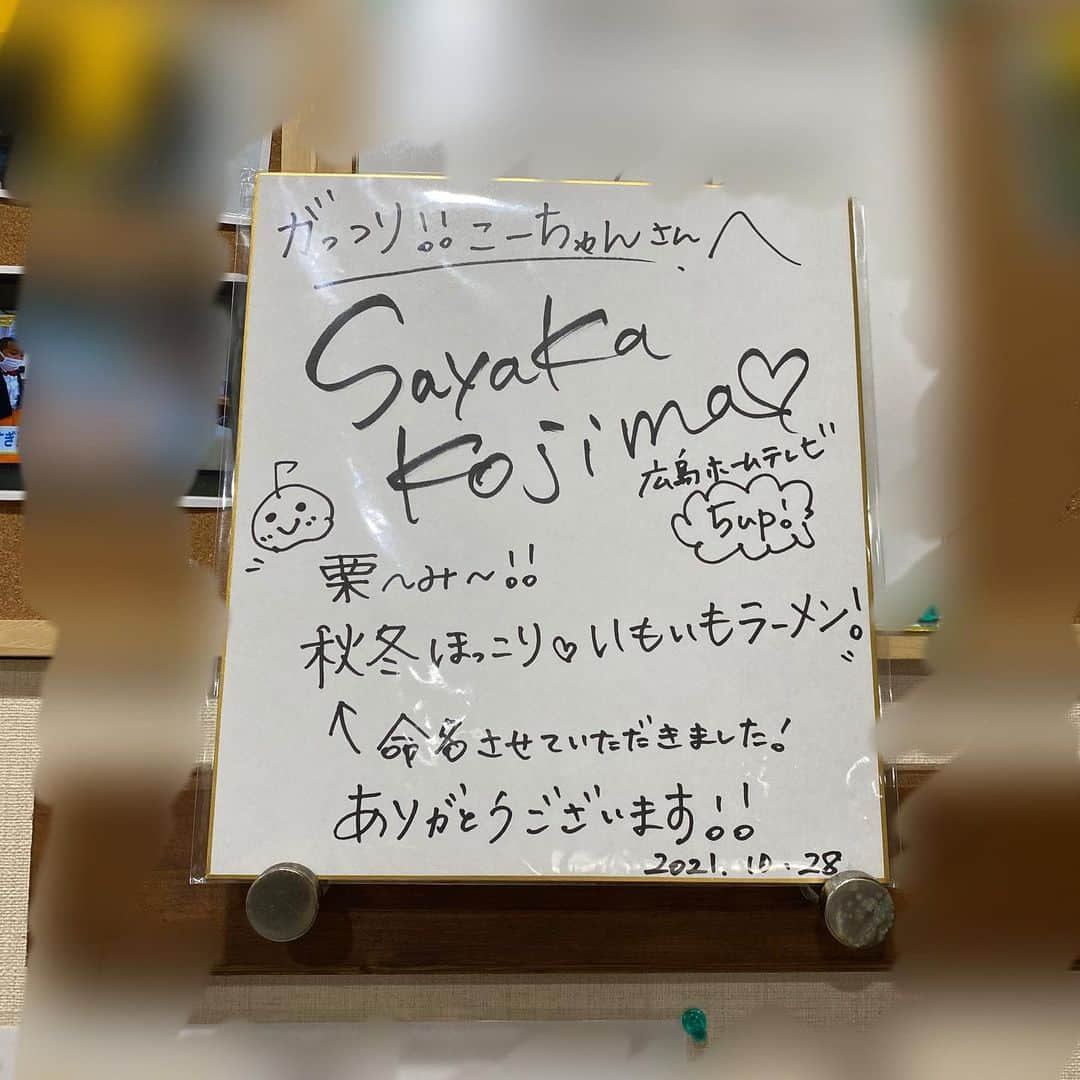 がっつり!!こーちゃんさんへ
Sayaka
Kojima♡
広島ホームテレビ
5up!
栗〜み〜!!
秋冬ほっこり♡いもいもラーメン!
↑命名させていただきました!
ありがとうございます!!
2021.10.28